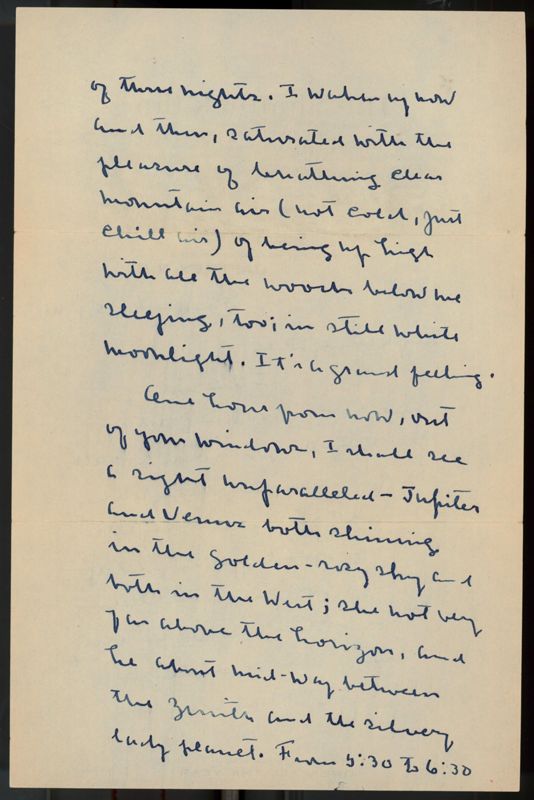 of these nights. I waken up now
and then, saturated with the
pleasure of breathing clear
mountain air (not cold, just
chill air) of being up high
with all the woods below me
sleeping, too; in still white
moonlight. It's a grand feeling.
One hour from now, out
of your windows, I shall see
a sight unparalleled - Jupiter
and Venus both shining
in the golden-rosy sky and
both in the West; she not very
far above the horizon, and
he about mid-way between
the zenith and the silvery
lady planet. From 5:30 to 6:30